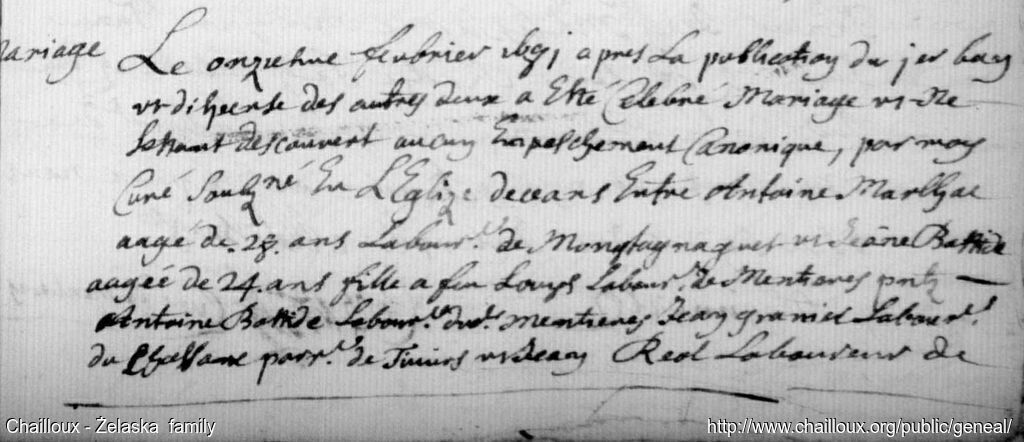 mariage
Le onziehme febvrier 1691 apres La publication du jer ban
et dispense des autres deux a Esté Celebré Mariage et Ne
sestant descouvert aucun Empeschement Canonique, par moy
Curé Soulzné En L'Eglize deceans Entre Antoine
aagé de . 28 . ans Labourr. de et Jeane Bastide
aageé de 24. ans fille a feu Louys Labourr. de Mentieres pntz
Antoine Bastide Labourr. dud. Mentieres Jean granier Labourr.
du parr. de Tiviers et Jean Reol Laboureur de
Chailloux - Żelaska family
http://www.chailloux.org/public/geneal/